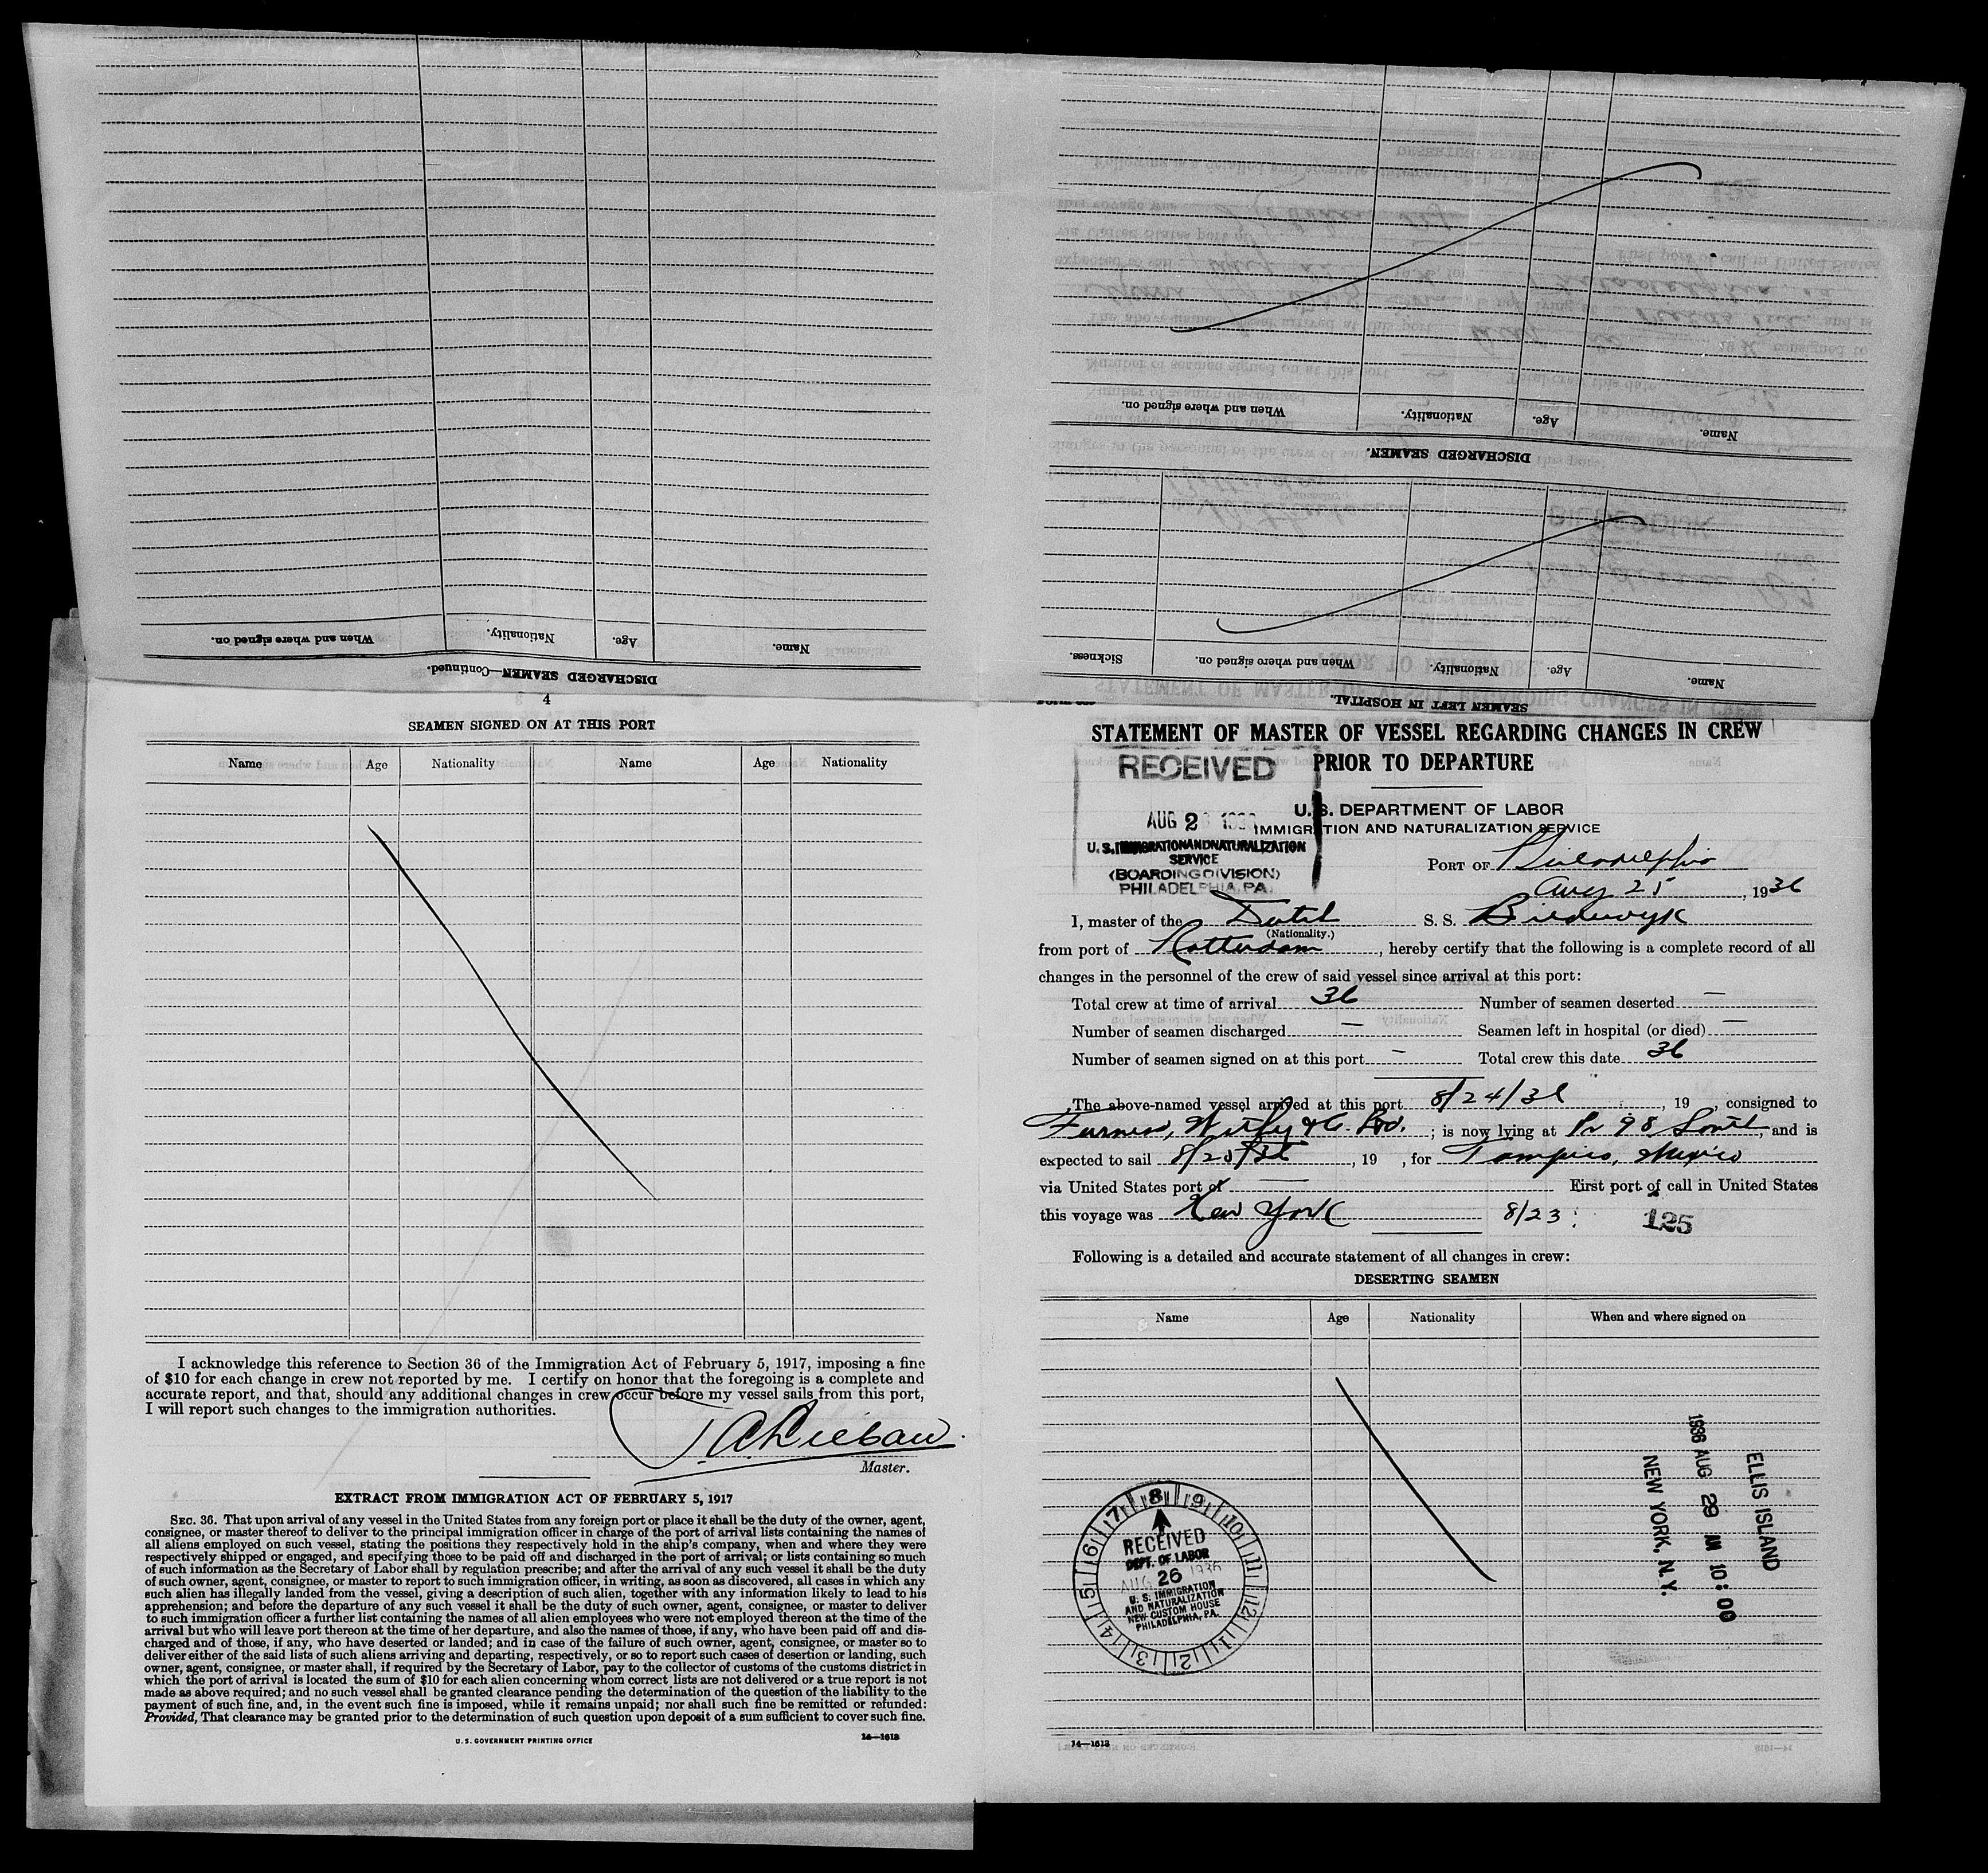 DISCHARGED SEAMEN—Continued.
Name.
Age.
Nationality.
When and where signed on.
DISCHARGED SEAMEN.
Name.
Age.
Nationality.
When and where signed on.
SEAMEN LEFT IN HOSPITAL.
Name.
Age.
Nationality.
When and where signed on.
Sickness.
4
SEAMEN SIGNED ON AT THIS PORT
Name Age Nationality Name Age Nationality
I acknowledge this reference to Section 36 of the Immigration Act of February 5, 1917, imposing a fine
of $10 for each change in crew not reported by me. I certify on honor that the foregoing is a complete and
accurate report, and that, should any additional changes in crew occur before my vessel sails from this port,
I will report such changes to the immigration authorities.
Master.
EXTRACT FROM IMMIGRATION ACT OF FEBRUARY 5, 1917
SEC. 36. That upon arrival of any vessel in the United States from any foreign port or place it shall be the duty of the owner, agent,
consignee, or master thereof to deliver to the principal immigration officer in charge of the port of arrival lists containing the names of
all aliens employed on such vessel, stating the positions they respectively hold in the ship's company, when and where they were
respectively shipped or engaged, and specifying those to be paid off and discharged in the port of arrival; or lists containing so much
of such information as the Secretary of Labor shall by regulation prescribe; and after the arrival of any such vessel it shall be the duty
of such owner, agent, consignee, or master to report to such immigration officer, in writing, as soon as discovered, all cases in which any
such alien has illegally landed from the vessel, giving a description of such alien, together with any information likely to lead to his
apprehension; and before the departure of any such vessel it shall be the duty of such owner, agent, consignee, or master to deliver
to such immigration officer a further list containing the names of all alien employees who were not employed thereon at the time of the
arrival but who will leave port thereon at the time of her departure, and also the names of those, if any, who have been paid off and dis-
charged and of those, if any, who have deserted or landed; and in case of the failure of such owner, agent, consignee, or master so to
deliver either of the said lists of such aliens arriving and departing, respectively, or so to report such cases of desertion or landing, such
owner, agent, consignee, or master shall, if required by the Secretary of Labor, pay to the collector of customs of the customs district in
which the port of arrival is located the sum of $10 for each alien concerning whom correct lists are not delivered or a true report is not
made as above required; and no such vessel shall be granted clearance pending the determination of the question of the liability to the
payment of such fine, and, in the event such fine is imposed, while it remains unpaid; nor shall such fine be remitted or refunded:
Provided, That clearance may be granted prior to the determination of such question upon deposit of a sum sufficient to cover such fine.
U. S. GOVERNMENT PRINTING OFFICE 14—1613
STATEMENT OF MASTER OF VESSEL REGARDING CHANGES IN CREW
PRIOR TO DEPARTURE
RECEIVED
AUG 2
U. S. IMMIGRATION AND NATURALIZATION
SERVICE
(BOARDING DIVISION)
PHILADELPHIA, PA.
U. S. DEPARTMENT OF LABOR
IMMIGRATION AND NATURALIZATION SERVICE
PORT OF Philadelphia
Aug 25, 1936
I, master of the Dutch S. S.
(Nationality.)
from port of Rotterdam, hereby certify that the following is a complete record of all
changes in the personnel of the crew of said vessel since arrival at this port:
Total crew at time of arrival 36 Number of seamen deserted —
Number of seamen discharged — Seamen left in hospital (or died) —
Number of seamen signed on at this port — Total crew this date 36
The above-named vessel arrived at this port 8/24/36, 19 , consigned to
Furness, Withy & Co. Ltd. ; is now lying at Pr 98 South, and is
expected to sail 8/25/36, 19 , for Tampico, Mexico
via United States port of — First port of call in United States
this voyage was New York 8/23 125
Following is a detailed and accurate statement of all changes in crew:
DESERTING SEAMEN
Name Age Nationality When and where signed on
ELLIS ISLAND
1936 AUG 29 AM 10:00
NEW YORK, N. Y.
1 2 3 4 5 6 7 8 9 10 11 12
RECEIVED
DEPT. OF LABOR
AUG 26 1936
U. S. IMMIGRATION
AND NATURALIZATION
NEW CUSTOM HOUSE
PHILADELPHIA, PA.
14—1613